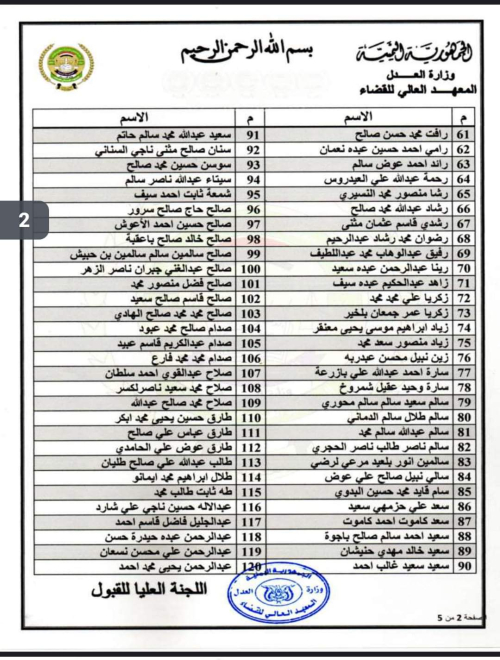 الجمهورية اليمنية
وزارة العدل
المعهد العالي للقضاء
بسم الله الرحمن الرحيم
م الاسم م الاسم
61 رافت محمد حسن صالح 91 سعيد عبدالله محمد سالم حاتم
62 رامي احمد حسين عبده نعمان 92 سنان صالح مثنى ناجي السناني
63 رائد احمد عوض سالم 93 سوسن حسين محمد صالح
64 رحمة عبدالله علي العيدروس 94 سيتاء عبدالله ناصر سالم
65 رشا منصور محمد النسيري 95 شمعة ثابت احمد سيف
66 رشاد عبدالله محمد صالح 96 صالح حاج صالح سرور
67 رشدي قاسم عثمان مثنى 97 صالح حسين احمد الأعوش
68 رضوان محمد رشاد عبدالرحيم 98 صالح خالد صالح باعقبة
69 رفيق عبدالوهاب محمد عبداللطيف 99 صالح سالمين سالم سالمين بن حبيش
70 رينا عبدالرحمن عبده سعيد 100 صالح عبدالغني جبران ناصر الزهر
71 زاهد عبدالحكيم عبده سيف 101 صالح فضل منصور محمد
72 زكريا علي محمد محمد 102 صالح قاسم صالح سعيد
73 زكريا عمر جمعان بلخير 103 صالح محمد محمد صالح الهادي
74 زياد ابراهيم موسى يحيى معنقر 104 صدام صالح محمد عبود
75 زياد منصور سعد محمد 105 صدام عبدالكريم قاسم عبيد
76 زين نبيل محسن عبدربه 106 صدام محمد محمد فارع
77 سارة احمد عبدالله علي بازرعة 107 صلاح عبدالقوي احمد سلطان
78 سارة وحيد عقيل شمروخ 108 صلاح محمد سعيد ناصرلكسر
79 سالم سعيد سالم سالم محوري 109 صلاح محمد صالح عبدالله
80 سالم طلال سالم الدماني 110 طارق حسين يحيى محمد ابكر
81 سالم عبدالله سالم محمد 111 طارق عباس علي صالح
82 سالم ناصر طالب ناصر الحجري 112 طارق عوض علي الحامدي
83 سالمين انور بلعيد مرعي لرضي 113 طالب عبدالله علي صالح طليان
84 سالي نبيل صالح علي عوض 114 طلال ابراهيم محمد ايمانو
85 سام قايد محمد حسين البدوي 115 طه ثابت طالب محمد
86 سعد علي حزمهي سعيد 116 عبدالاله حسين ناجي علي شارد
87 سعد كاموت احمد كاموت 117 عبدالجليل فاضل قاسم احمد
88 سعيد احمد سالم صالح باجوة 118 عبدالرحمن عبده حيدرة حسن
89 سعيد خالد مهدي حنيشان 119 عبدالرحمن علي محسن نسعان
90 سعيد سعيد غالب احمد 120 عبدالرحمن يحيى محمد احمد
اللجنة العليا للقبول
الجمهورية اليمنية
وزارة العدل
المعهد العالي للقضاء
صفحة 2 من 5
2